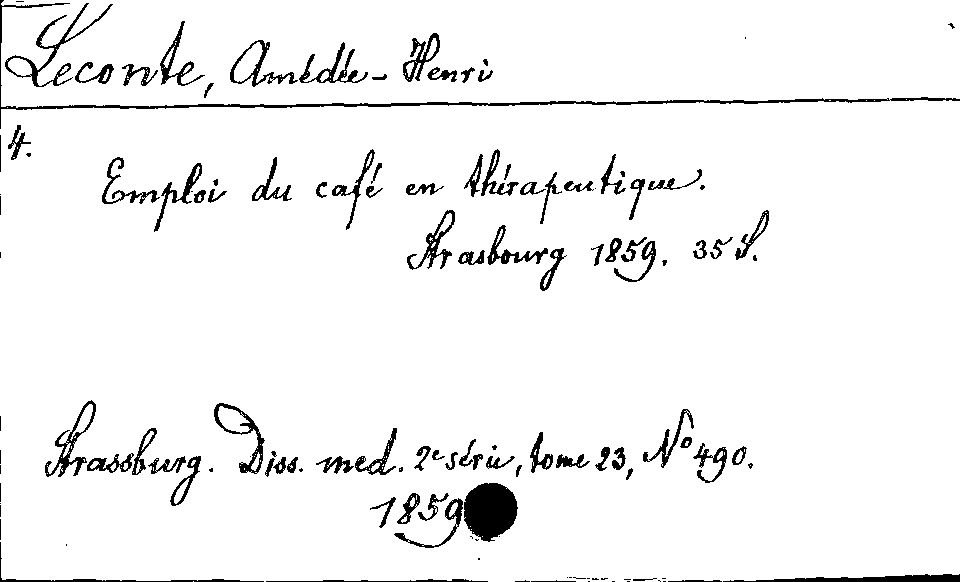 Leconte, Amédée-Henri
4.
Emploi du café en thérapeutique.
Strasbourg 1859. 35 S.
Strassburg. Diss. med. 2e série, tome 23, No 490.
1859